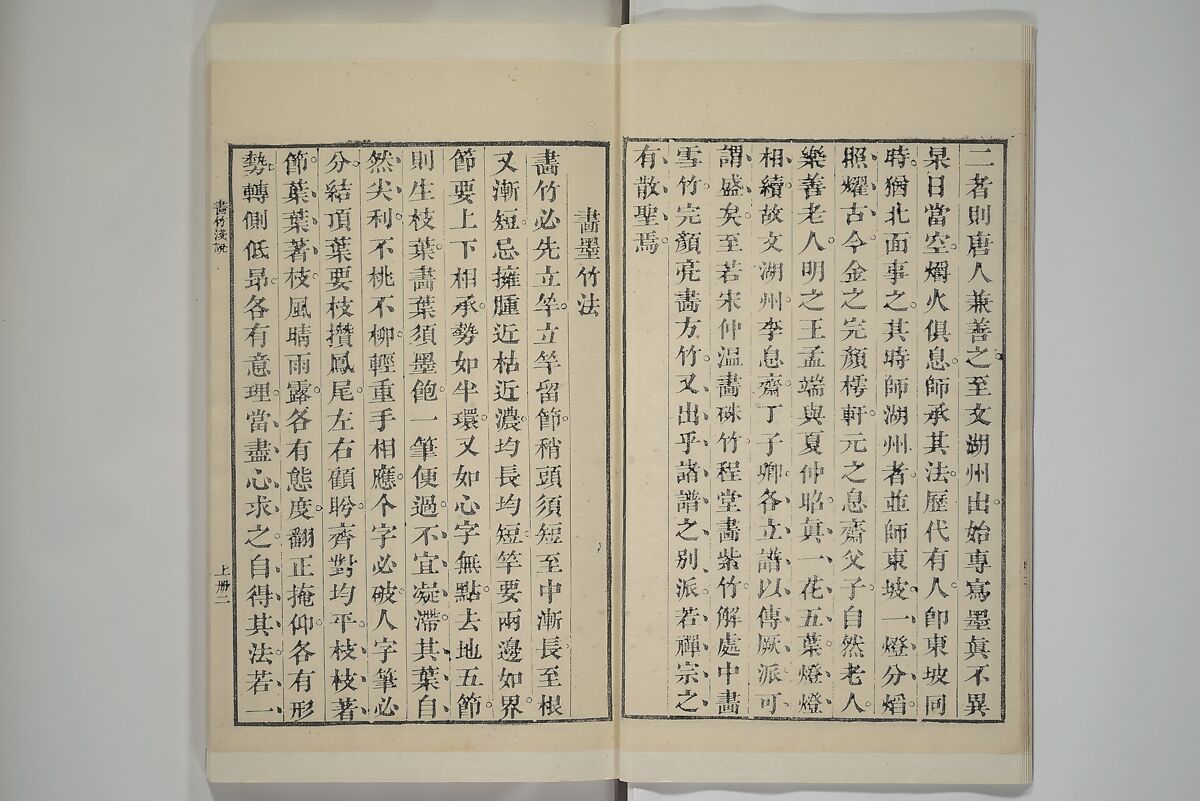 二者則唐人兼善之至文湖州出始專寫墨眞不異
杲日當空爝火俱息師承其法歷代有人卽東坡同
時猶北面事之其時師湖州者並師東坡一燈分熖
照燿古今金之完顏樗軒元之息齋父子自然老人
樂善老人明之王孟端與夏仲昭眞一花五葉燈燈
相續故文湖州李息齋丁子卿各立譜以傳厥派可
謂盛矣至若宋仲溫畫硃竹程堂畫紫竹解處中畫
雪竹完顏亮畫方竹又出乎諸譜之別派若禪宗之
有散聖焉
畫墨竹法
畫竹必先立竿立竿留節稍頭須短至中漸長至根
又漸短忌擁腫近枯近濃均長均短竿要兩邊如界
節要上下相承勢如半環又如心字無點去地五節
則生枝葉畫葉須墨飽一筆便過不宜凝滯其葉自
然尖利不桃不柳輕重手相應个字必破人字筆必
分結頂葉要枝攢鳳尾左右顧盻齊對均平枝枝著
節葉葉著枝風晴雨露各有態度翻正掩仰各有形
勢轉側低昂各有意理當盡心求之自得其法若一
畫竹淺說
上册二